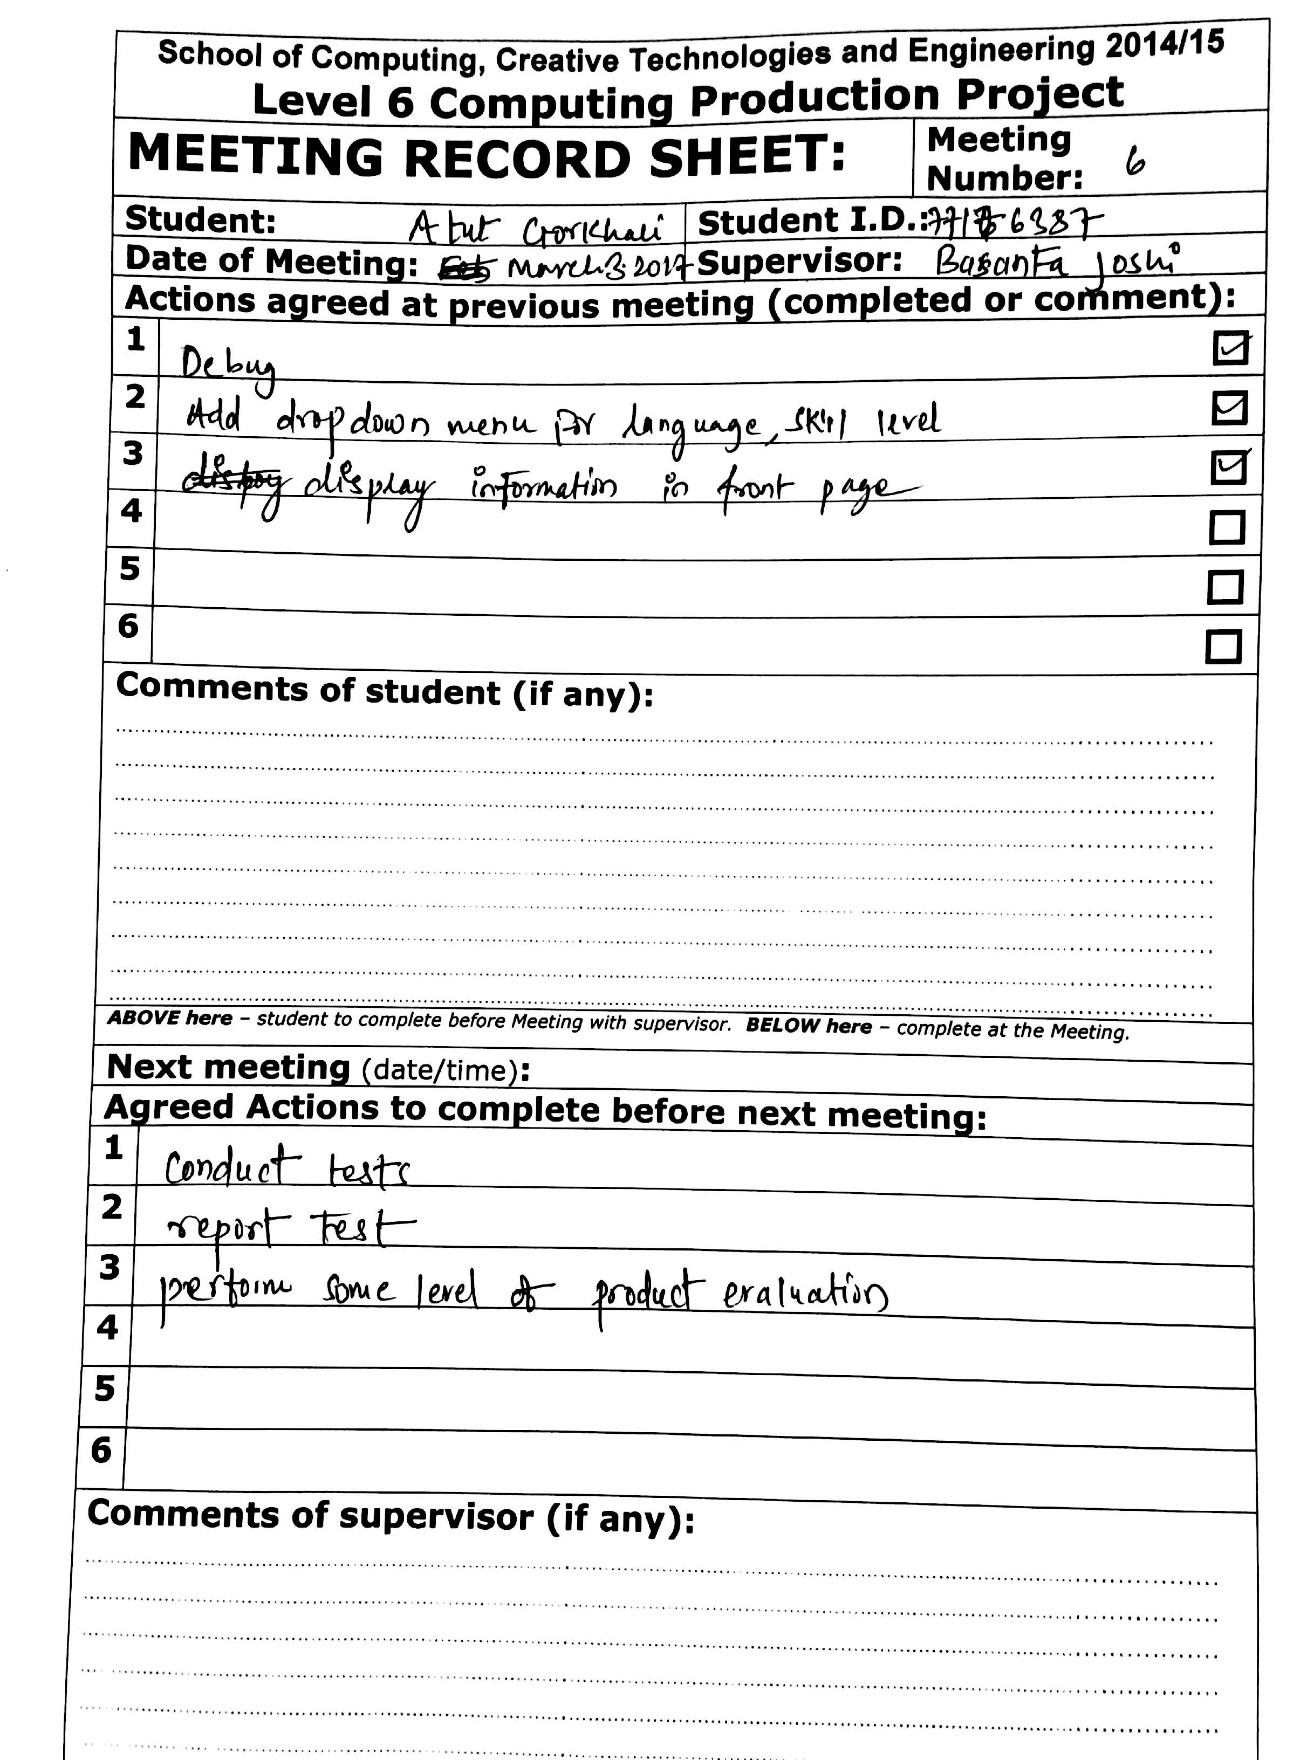 School of Computing, Creative Technologies and Engineering 2014/15
Level 6 Computing Production Project
MEETING RECORD SHEET:
Meeting Number: 6
Student: Atut Gorkhali
Student I.D.:
Date of Meeting: March 3 2017
Supervisor: Basanta Joshi
Actions agreed at previous meeting (completed or comment):
1 Debug
2 Add dropdown menu for language, skill level
3 display information in front page
4
5
6
Comments of student (if any):
ABOVE here – student to complete before Meeting with supervisor. BELOW here – complete at the Meeting.
Next meeting (date/time):
Agreed Actions to complete before next meeting:
1 Conduct tests
2 report test
3 perform some level of product evaluation
4
5
6
Comments of supervisor (if any):